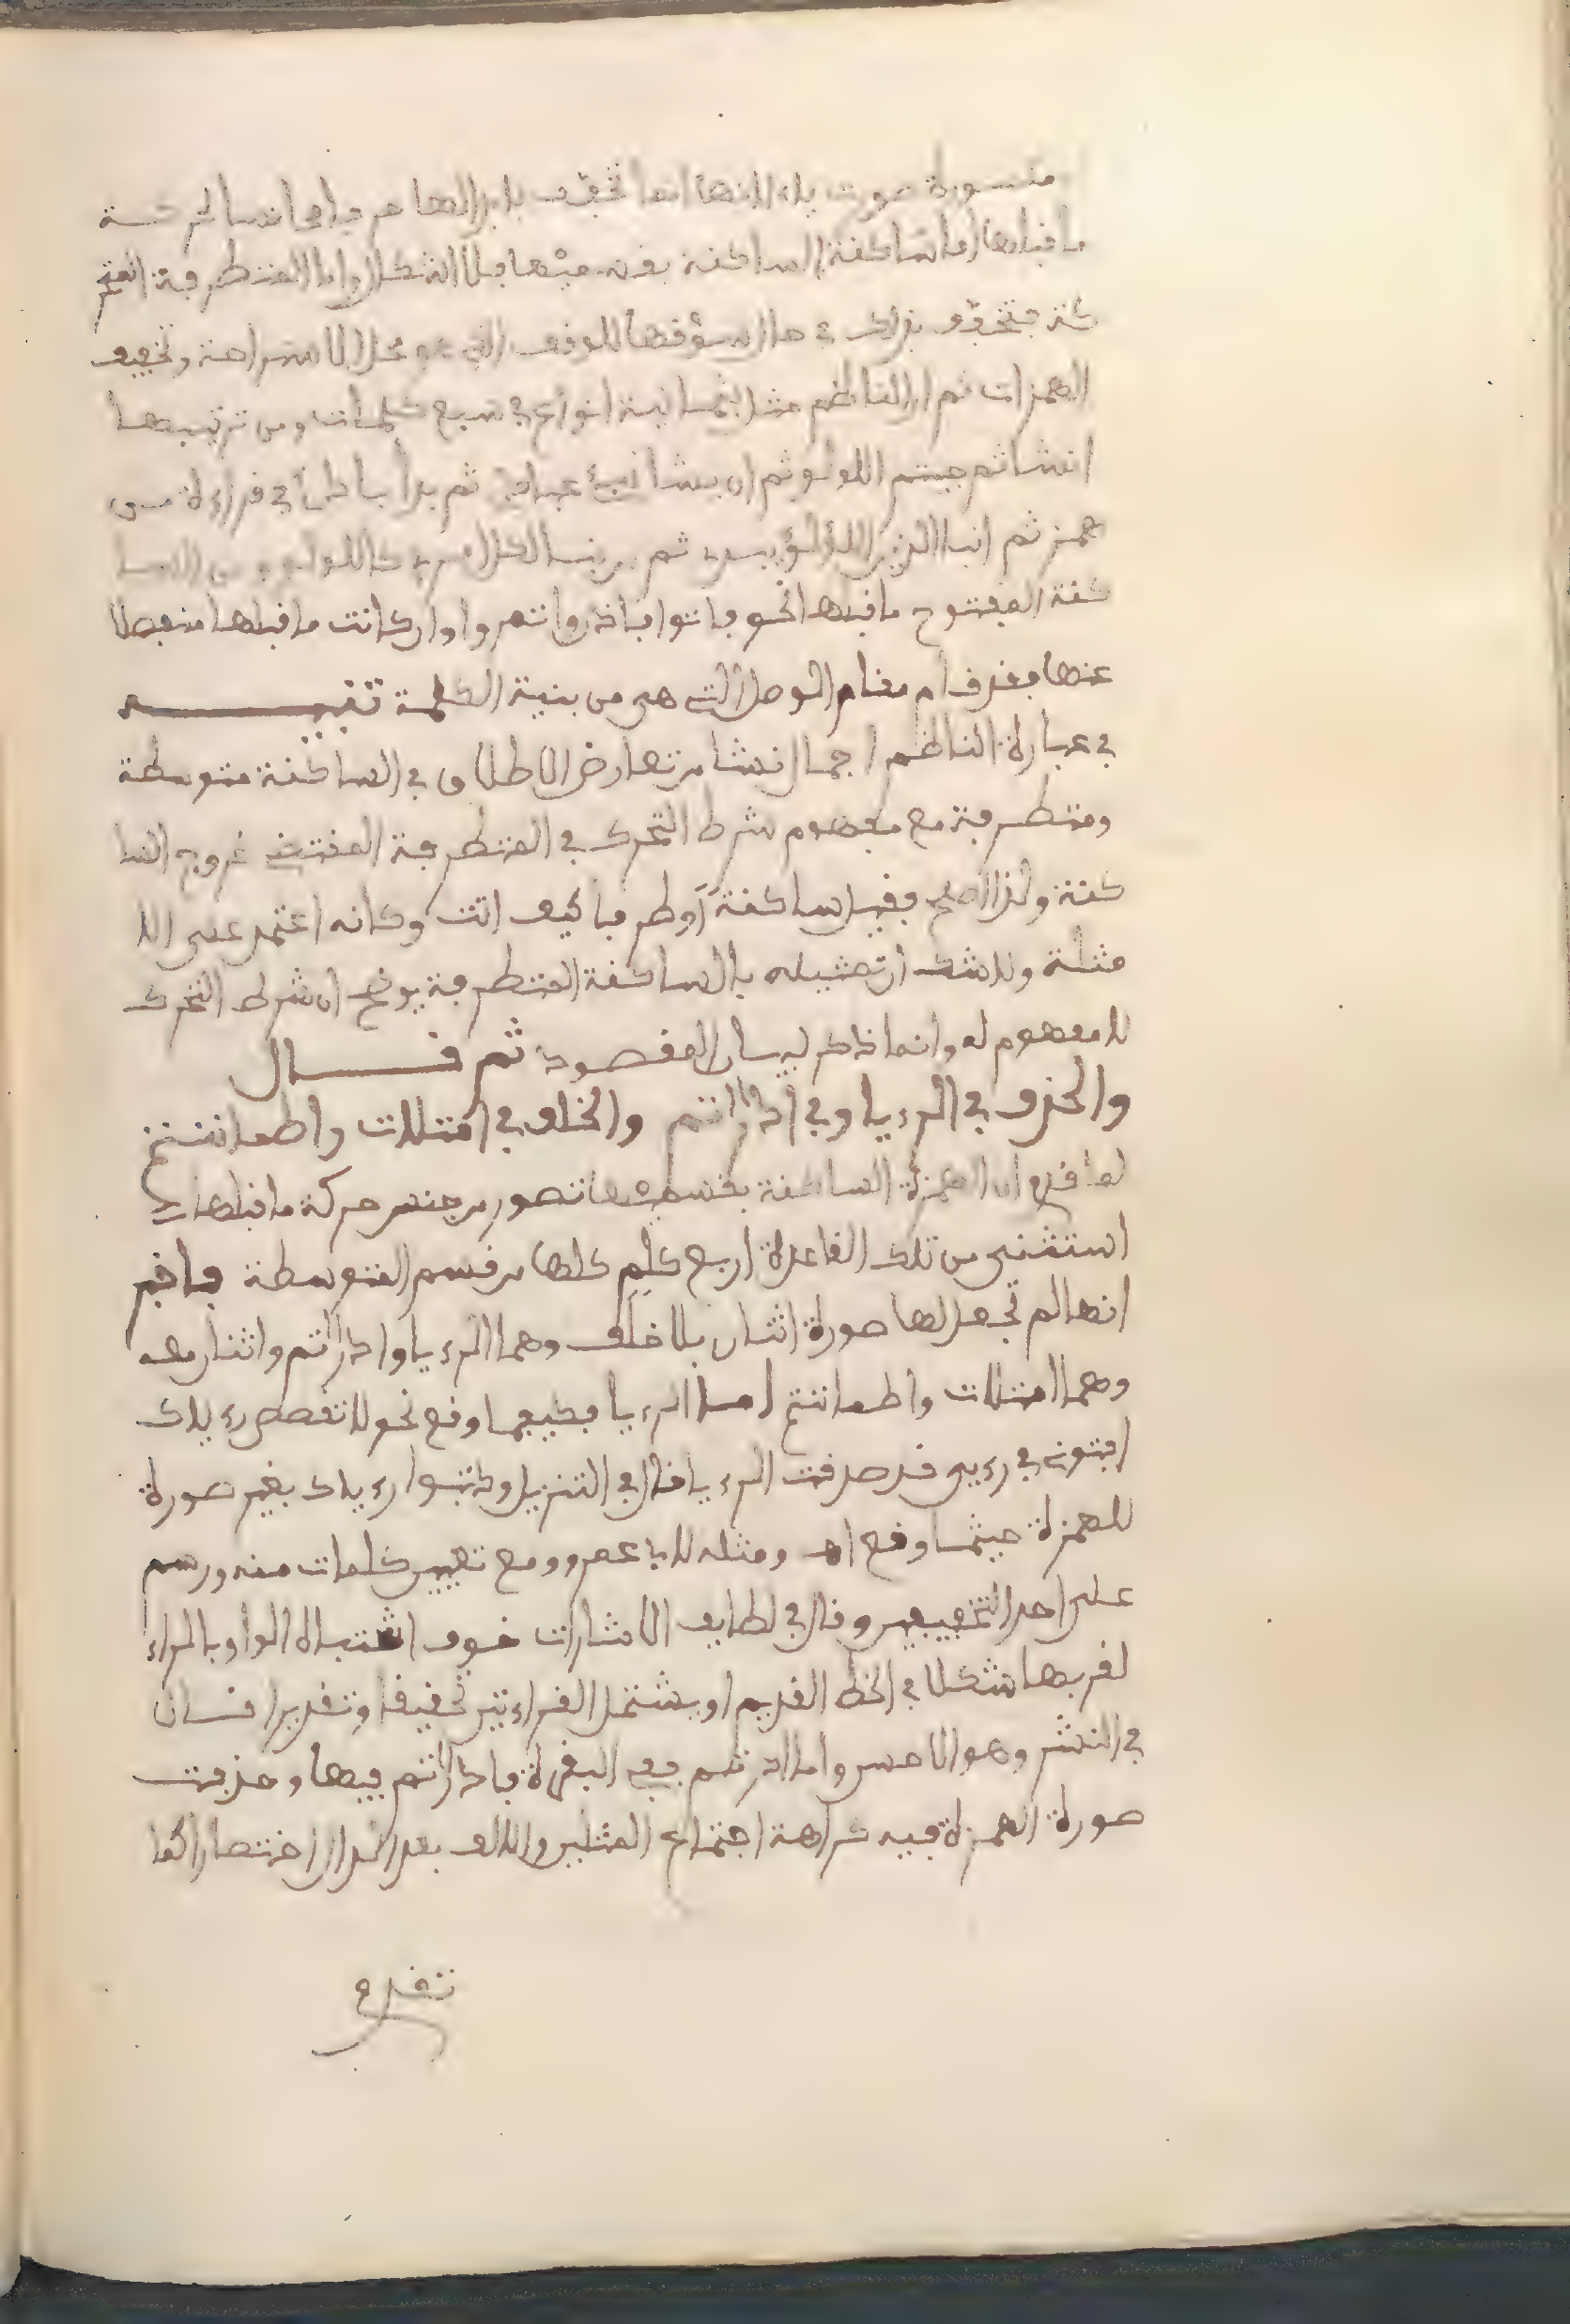 مكسورة صورت ياء لانها انما تخفف بابدالها حرفا مجانسا لحركة
ما قبلها اما الساكنة بقسميها فلا اشكال واما المتطرفة المتحر
كة فتخفف بذلك في حال سكونها للوقف الذي هو محل الاستراحة وتخفيف
الهمزات ثم ان الناظم مثل لثمانية انواع في سبع كلمات ومن ترتيبها
انشا ثم جيتم اللولو ثم ان يشا نبئ عبادي ثم بدا باطل في قراءة من
همز ثم انبا الذين اللؤلؤ ثم من نبا لكل امرئ كاللولو ومن السا
كنة المفتوح ما قبلها نحو فاتوا فاذنوا وأتمروا وان كانت ما قبلها منفصلا
عنها فقد قام مقام الوصل التي هي من بنية الكلمة تنبيـــه
في عبارة الناظم اجمال نشا من تعارض الاطلاق في الساكنة متوسطة
ومتطرفة مع مفهوم شرط التحرك في المتطرفة المقتضي خروج السا
كنة ولذا اصلح فقيل ساكنة أو طرفا كيف اتت وكانه اعتمد على الا
مثلة ولا شك ان تمثيله بالساكنة المتطرفة يوضح ان شرط التحرك
لا مفهوم له وانما ذكر لبيان المقصود ثم قـــال
والحذف في الرءيا وفي ادارأتم والخلف في امتلات واطماننتم
لما قدم ان الهمزة الساكنة بقسميها تصور من جنس حركة ما قبلها
استثنى من تلك القاعدة اربع كلم كلها من قسم المتوسطة فاخبر
انها لم تجعل لها صورة اثنان بلا خلف وهما الرءيا وادارأتم واثنان به
وهما امتلات واطماننتم اما الرءيا فكيفما وقع نحو لا تقصص رءياك
افتوني في رءيي قد صدقت الرءيا قال في التنزيل وكتبوا رءياك بغير صورة
للهمزة حيثما وقع اه ومثله لابي عمرو ومع تعيين كلمات منه ورسم
على احد التخفيفين وقال في لطايف الاشارات خوف اشتباه الواو بالراء
لقربها شكلا في الخط القديم او يشتمل القراءتين تحقيقا وتقديرا قال
في النشر وهو الاحسن واما ادارأتم ففي البقرة فادارأتم فيها وحذفت
صورة الهمزة فيه كراهة اجتماع المثلين والالف بعد الدال اختصارا كما
تقدم